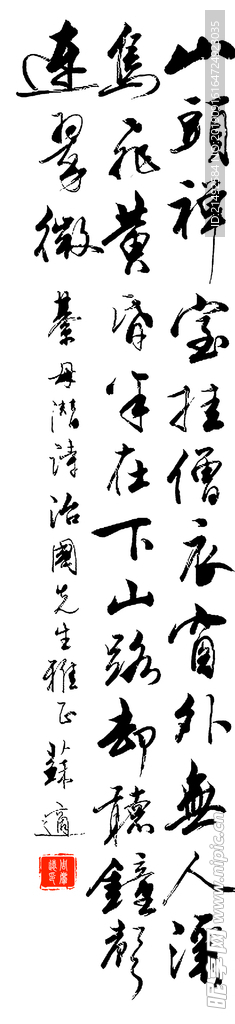 山頭禅室挂僧衣窗外無人溪
鳥飛黄昏半在下山路却聽鐘聲
連翠微
綦毋潜詩治國先生雅正 蘇適
昵图网 www.nipic.com